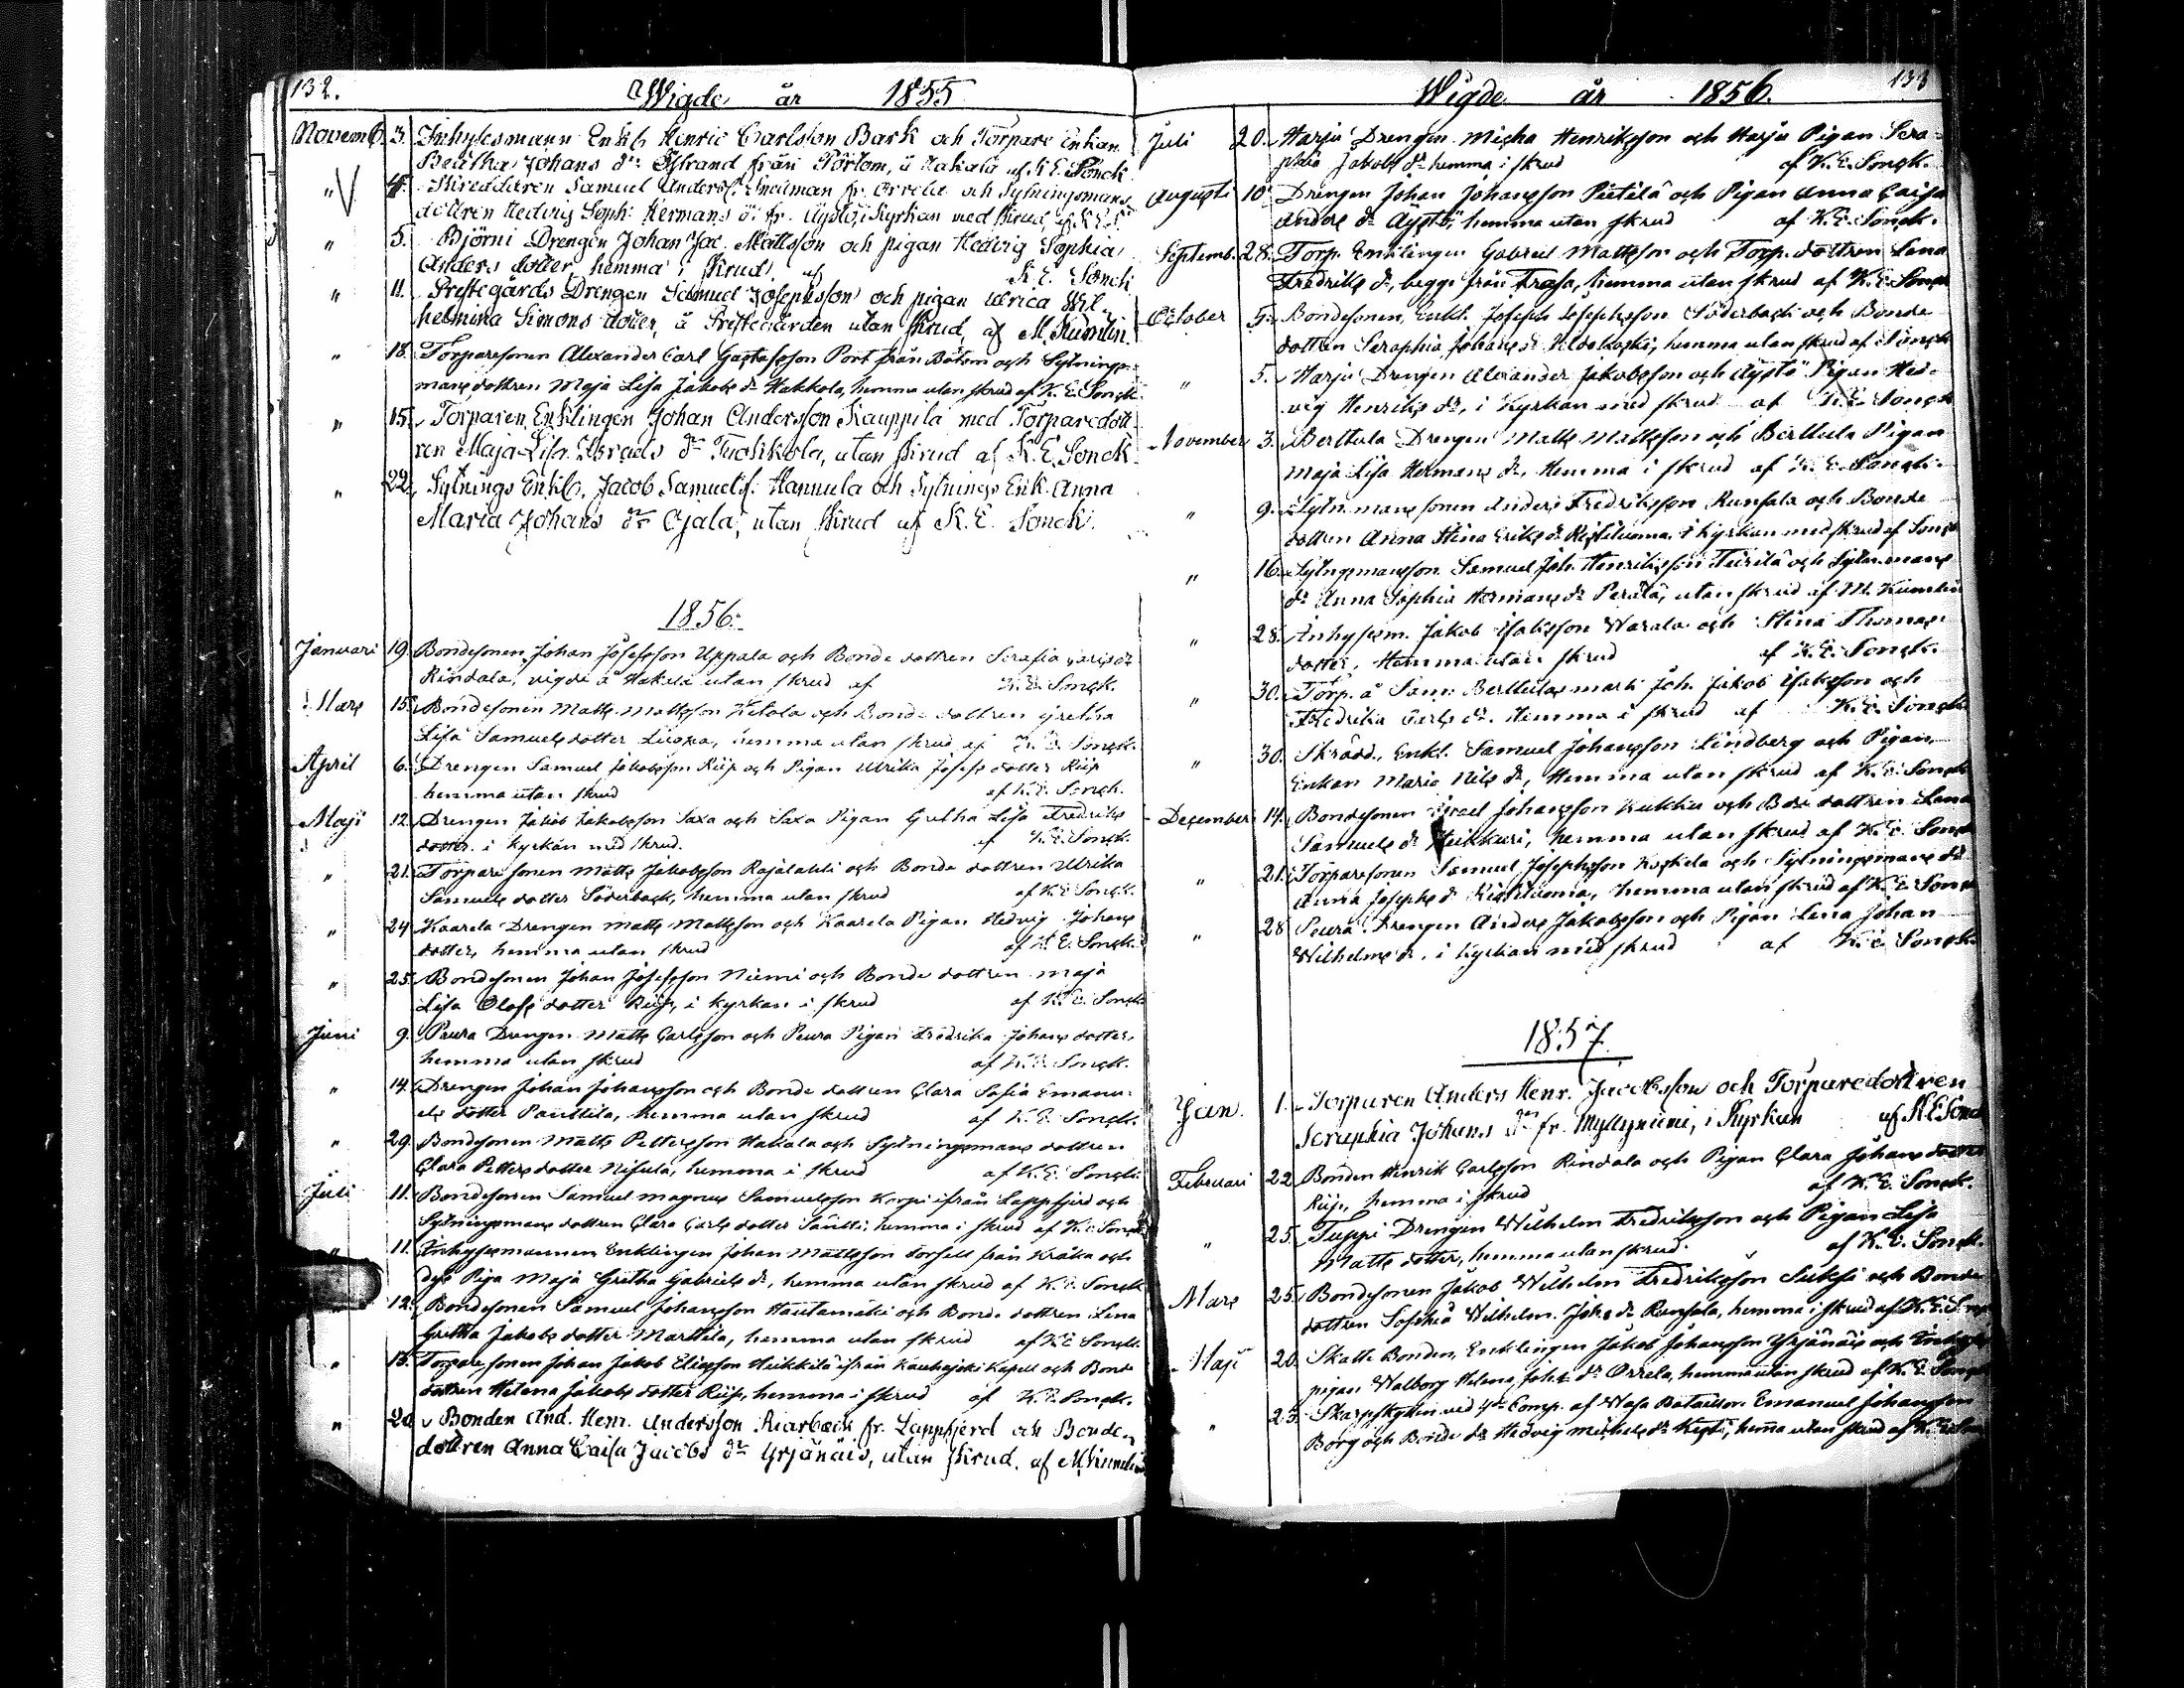 132.
Wigde år 1855
Novemb. 3. Inhysesmann Enkl. Henric Carlsson Bark och Torpare Enkan
Beatha Johans dr Östrand från Pörtom, å Hakala af K E. Sonck
" 4. Skreddaren Samuel Anders. fr. Orrela och Sytningsmans
dottren Hedvig Soph: Hermans d: fr. Äystö, i Kyrkan med skrud, af K E S.
" 5. Björni Drengen Johan Jac. Mattsson och pigan Hedvig Sophia
Anders dotter, hemma i skrud af K. E. Sonck
" 11. Prestegårds Drengen Samuel Josephsson och pigan Ulrica Wil-
helmina Simons dotter, å Prestegården utan skrud, af M. Kumlin
" 18. Torparesonen Alexander Carl Gustafsson Port från Bötom och Sytnings-
mans dottren Maja Lisa Jakobs dr Hakkola, hemma utan skrud af K. E. Sonck.
" 15. Torparen Enklingen Johan Andersson Kauppila med Torparedott-
ren Maja Lisa Israels dr Tuokkola, utan skrud af K. E. Sonck.
" 22. Sytnings Enkl. Jacob Samuels. Hannula och Sytnings Enk. Anna
Maria Johans dr Ojala, utan skrud af K. E. Sonck.
1856.
Januari 19. Bondesonen Johan Josefsson Uppala och Bonde dottren Serafia Carls dr
Rindala, vigde å Hakala utan skrud af K. E. Sonck.
Mars 15. Bondesonen Matts Mattsson Ketola och Bonde dottren Gretha
Lisa Samuels dotter Luopa, hemma utan skrud af K. E. Sonck.
April 6. Drengen Samuel Jakobsson Riip och Pigan Ulrika Josefs dotter Riip
hemma utan skrud af K. E. Sonck.
Maji 12. Drengen Jakob Jakobsson Saxa och Saxa Pigan Gretha Lisa Fredriks
dotter i kyrkan med skrud. af K. E. Sonck.
" 21. Torparesonen Matts Jakobsson Rajalahti och Bonde dottren Ulrika
Samuels dotter Söderback, hemma utan skrud af K. E. Sonck.
" 24 Kaarela Drengen Matts Mattsson och Kaarela Pigan Hedvig Johans
dotter, hemma utan skrud af K. E. Sonck.
" 25. Bondesonen Johan Josefsson Niemi och Bonde dottren Maja
Lisa Olofs dotter Riip, i kyrkan i skrud af K. E. Sonck.
Juni 9. Peura Drengen Matts Carlsson och Peura Pigan Fredrika Johans dotter,
hemma utan skrud af K. E. Sonck.
" 14. Drengen Johan Johansson och Bonde dottren Clara Sofia Emanu-
els dotter Panttila, hemma utan skrud af K. E. Sonck.
" 29. Bondesonen Matts Pettersson Hakala och Sytningsmans dottren
Clara Petters dotter Nisula, hemma i skrud af K. E. Sonck.
Juli 11. Bondesonen Samuel Magnus Samuelsson Korpi ifrån Lappfjerd och
Sytningsmans dottren Clara Carls dotter Säntti, hemma i skrud af K. E. Sonck
" 11. Inhysesmannen Enklingen Johan Mattsson Torsell från Kråka och
dess Piga Maja Gretha Gabriels dr, hemma utan skrud af K. E. Sonck
12. Bondesonen Samuel Johansson Hautamäki och Bonde dottren Lina
Gretha Jakobs dotter Marttila, hemma utan skrud af K E Sonck.
" 13. Torparesonen Johan Jakob Eliasson Heikkilä ifrån Kauhajoki Kapell och Bonde
dottren Helena Jakobs dotter Riip, hemma i skrud af K. E. Sonck.
" 20 Bonden And. Henr. Andersson Riarback fr. Lappfjerd och Bonde
dottren Anna Caisa Jacobs dr Yrjänäis, utan skrud. af M. Kumlin
133
Wigde år 1856.
Juli 20. Harju Drengen Micha Henriksson och Harju Pigan Sera-
phia Jakobs dr hemma i skrud af K. E. Sonck.
Augusti 10. Drengen Johan Johansson Pietilä och Pigan Anna Caisa
Anders dr Äystö, hemma utan skrud af K. E. Sonck.
Septemb. 28. Torp. Enklingen Gabriel Mattsson och Torp. dottren Lena
Fredriks dr, begge från Träsk, hemma utan skrud af K. E. Sonck
October 5. Bondesonen, Enkl. Joseph Josephsson Söderback och Bonde
dottren Seraphia Johans dr Kldokoski, hemma utan skrud af Sonck
" 5. Harju Drengen Alexander Jakobsson och Äystö Pigan Hed-
vig Henriks dr, i Kyrkan med skrud af K. E. Sonck
November 3. Berttula Drengen Matts Mattsson och Berttula Pigan
Maja Lisa Hermans dr, Hemma i skrud af K. E. Sonck.
" 9. Sytn. mans sonen Anders Fredriksson Runsala och Bonde
dottren Anna Stina Eriks dr Ristiluoma, i Kyrkan med skrud af Sonck
" 16. Sytngsmansson. Samuel Joh. Henriksson Teirilä och Sytn. mans
dr Anna Sophia Hermans dr Perälä, utan skrud af M. Kumlin
" 28. Inhysesm. Jakob Isaksson Warala och Stina Thomas
dotter, Hemma utan skrud af K. E. Sonck.
" 30. Torp. å Sam: Berttulas mark Joh. Jakob Isaksson och
Fredrika Carls dr. Hemma i skrud af K. E. Sonck.
" 30. Skrädd. Enkl. Samuel Johansson Lindberg och Pigan,
Enkan Maria Nils dr, Hemma utan skrud af K. E. Sonck
December 14. Bondesonen Israel Johansson Kukku och Bde dottren Lena
Samuels dr Heikkuri, hemma utan skrud af K. E. Sonck
" 21. Torparesonen Samuel Josephsson Koskela och Sytningsmans dr
Anna Josephs dr Ristiluoma, hemma utan skrud af K. E. Sonck
" 28 Peura Drengen Anders Jakobsson och Pigan Lena Johan
Wilhelms dr, i Kyrkan med skrud af K. E. Sonck.
1857.
Jan. 1. Torparen Anders Henr. Jacobsson och Torparedottren
Seraphia Johans dr fr. Myllyniemi, i Kyrkan af K E Sonck
Februari 22. Bonden Henrik Carlsson Rindala och Pigan Clara Johans dotter
Riip, hemma i skrud af K. E. Sonck.
" 25. Tuppi Drengen Wilhelm Fredriksson och Pigan Lisa
Matts dotter, hemma utan skrud. af K. E. Sonck.
Mars 25. Bondesonen Jakob Wilhelm Fredriksson Suksi och Bonde
dottren Sophia Wilhelm. Johs dr Runsala, hemma i skrud af K. E. Sonck
Maji 20. Skatte Bonden, Enklingen Jakob Johansson Yrjänäis och
pigan Walborg Helena Johs dr Orrela, hemma utan skrud af K. E. Sonck
" 23. Skarpskytten vid 4de Comp. af Wasa Bataillon Emanuel Johansson
Borg och Bonde dr Hedvig Michels dr Kesti, hema utan skrud af K. E. Sonck